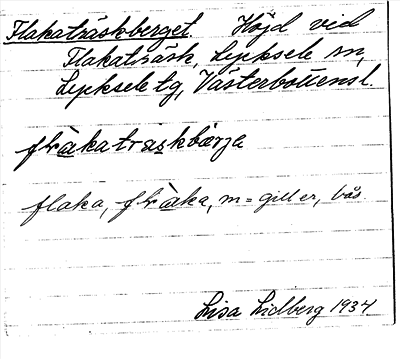 Flakaträskberget Höjd vid
Flakaträsk, Lycksele m,
Lycksele tg, Västerbottensl.
flàkatraskbærja
flaka, flàka, m = giller, bås.
Lisa Lidberg 1934